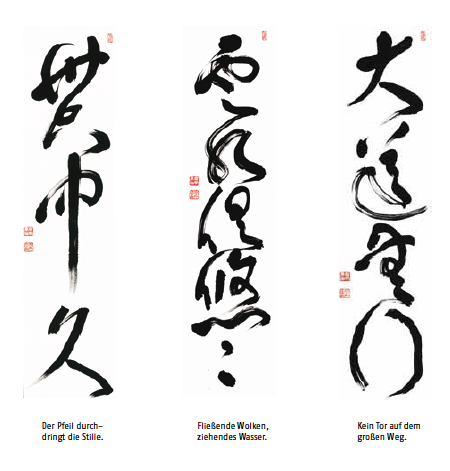 貫中久
雲水俱悠々
大道無門
Der Pfeil durch-
dringt die Stille.
Fließende Wolken,
ziehendes Wasser.
Kein Tor auf dem
großen Weg.